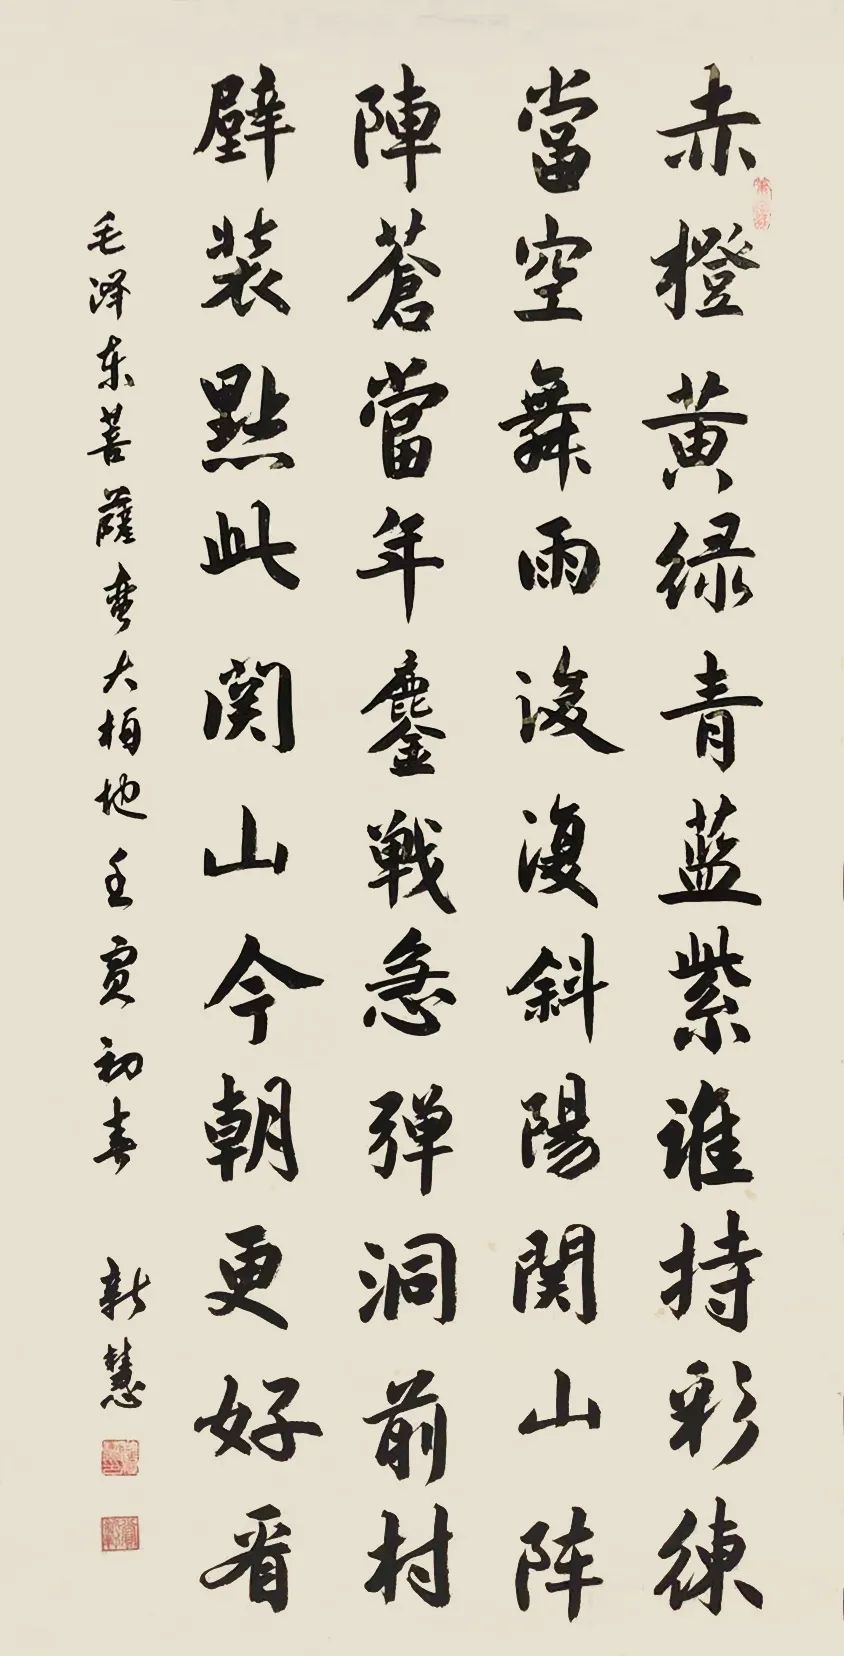 赤橙黄绿青蓝紫谁持彩练
當空舞雨後復斜陽関山阵
陣蒼當年鏖戰急弹洞前村
壁装點此関山今朝更好看
毛泽东菩薩蛮大柏地壬寅初春 新慧